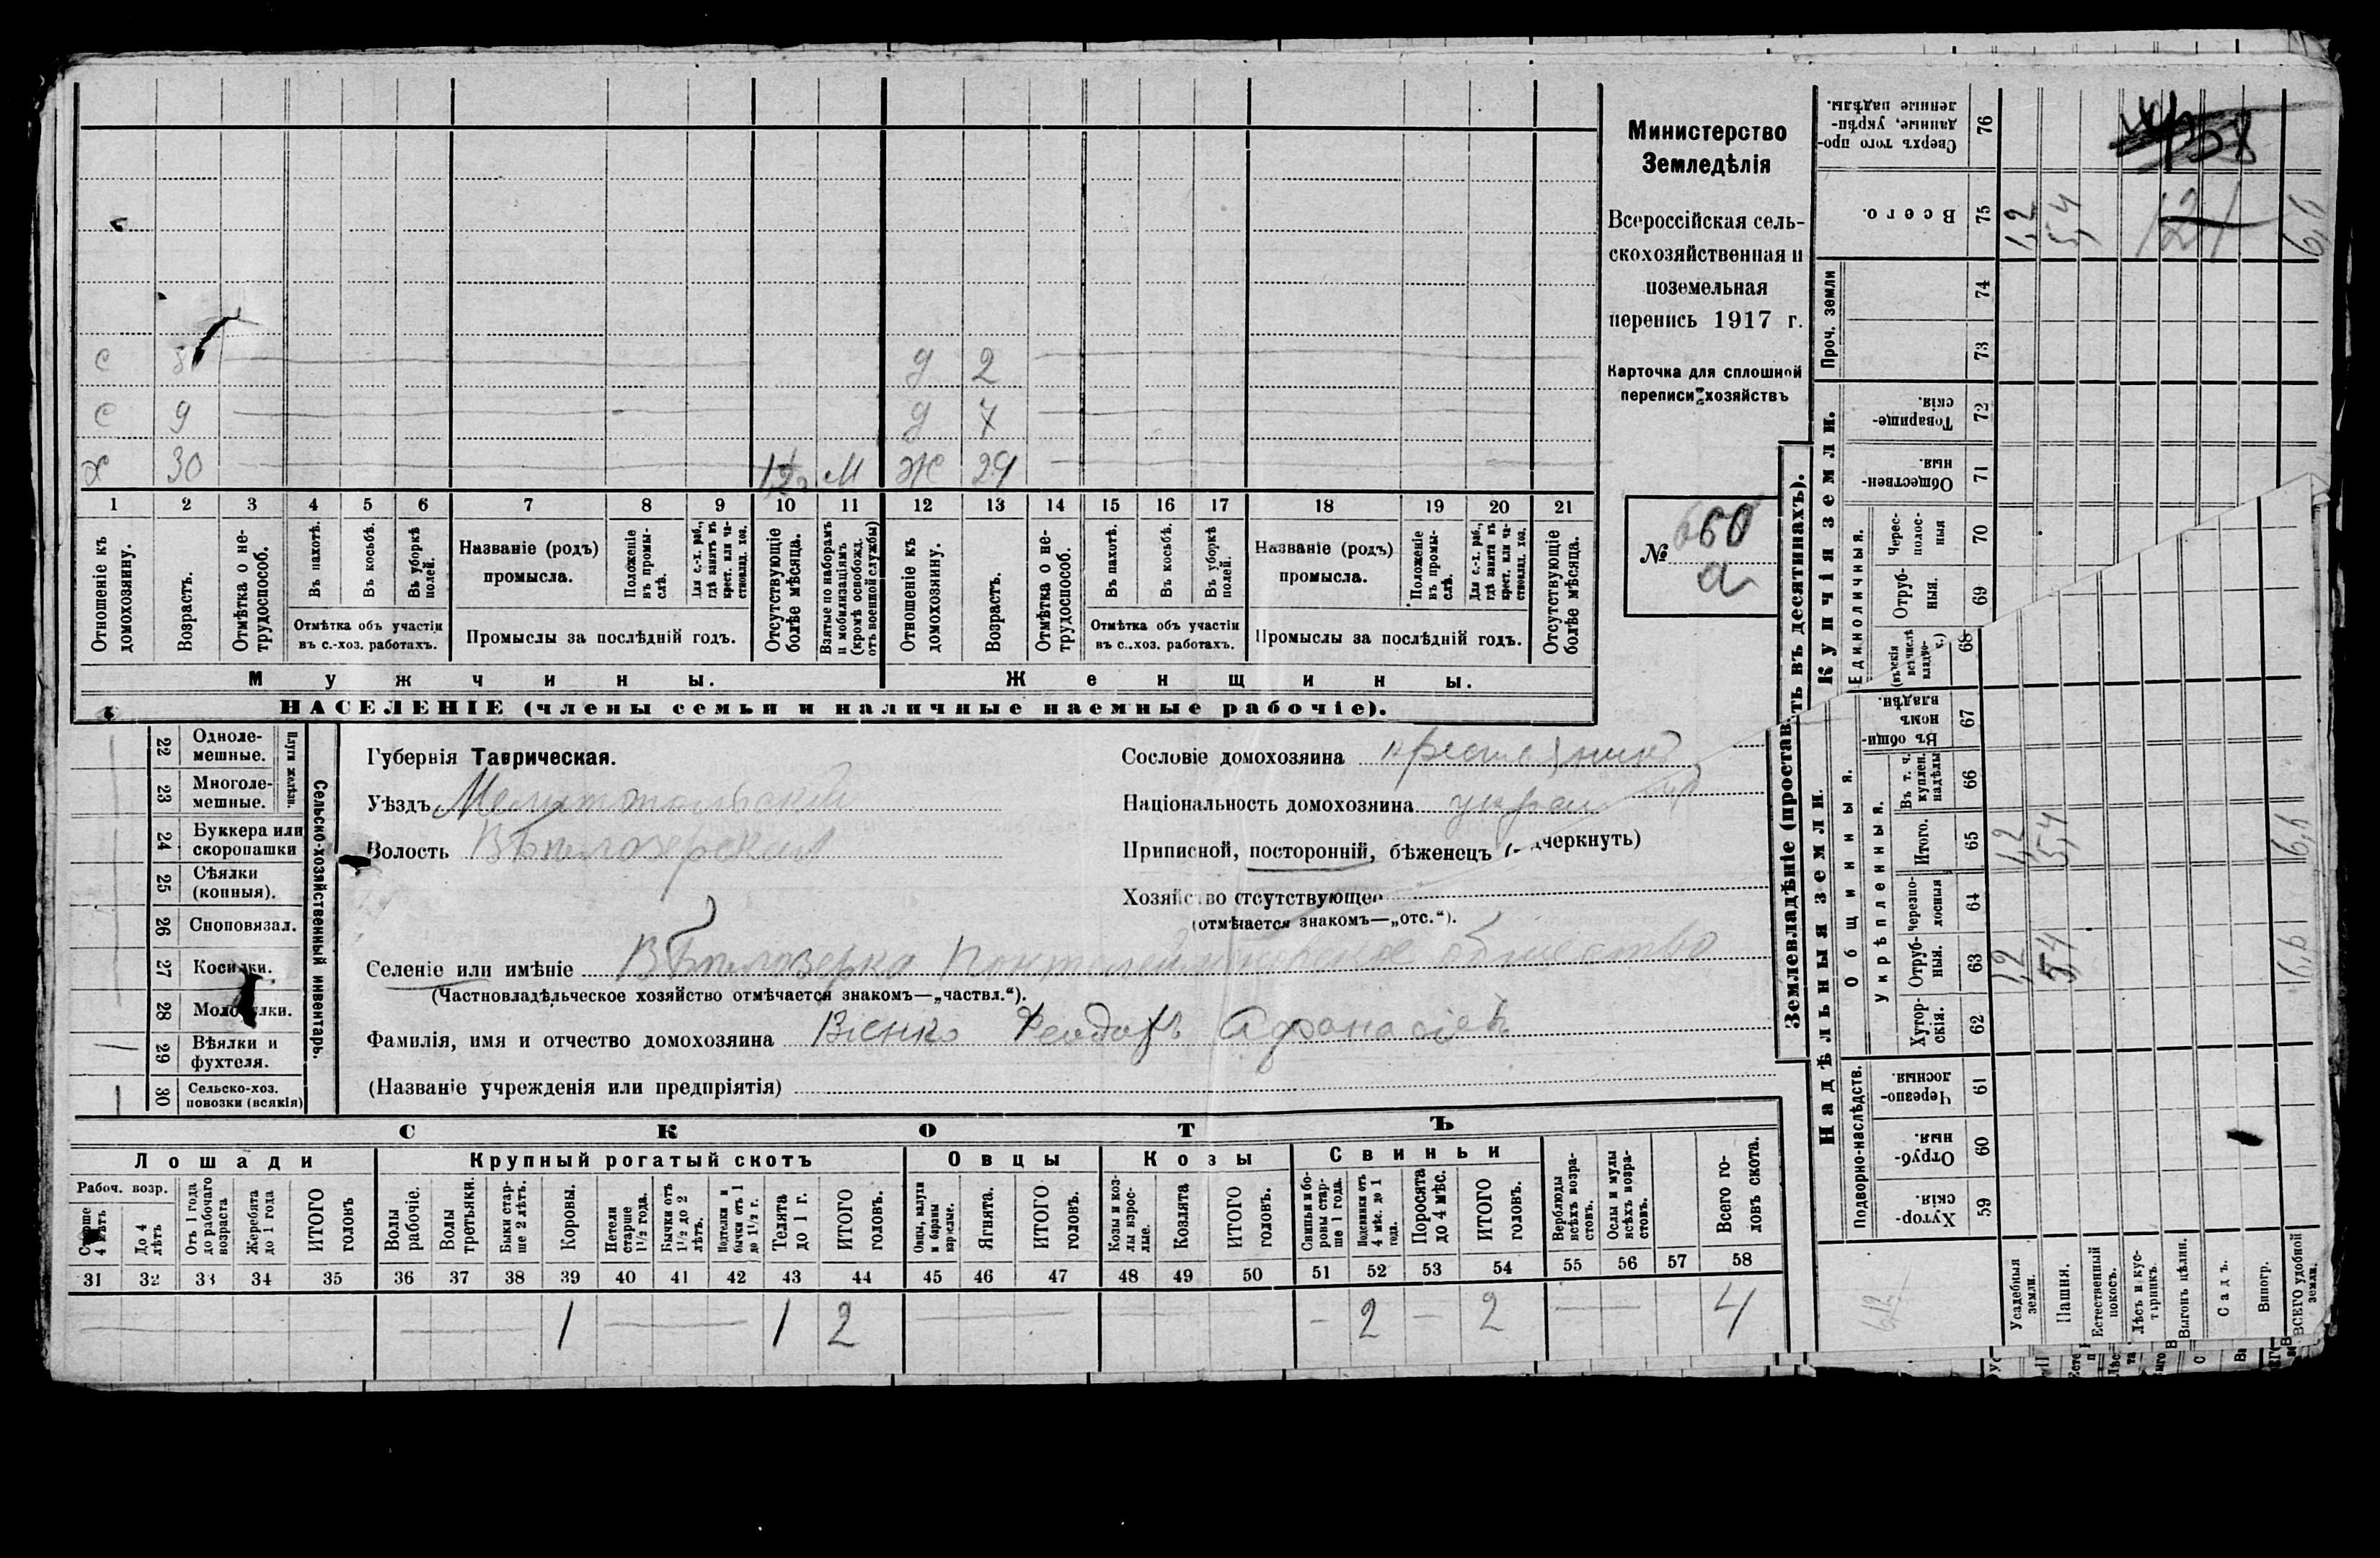 с 8 д 2
с 9 д 7
х 30 12 м ж 29
1 2 3 4 5 6 7 8 9 10 11 12 13 14 15 16 17 18 19 20 21
Отношеніе къ домохозяину.
Возрастъ.
Отмѣтка о не-трудоспособ.
Въ пахотѣ.
Въ косьбѣ.
Въ уборкѣ полей.
Отмѣтка объ участіи
въ с.-хоз. работахъ.
Названіе (родъ)
промысла.
Положеніе въ промы-слѣ.
Для с.-х. раб., гдѣ занятъ въ крест. или ча-стновлад. хоз.
Промыслы за послѣдній годъ.
Отсутствующіе болѣе мѣсяца.
Взятые по наборамъ и мобилизаціямъ (кромѣ освобожд. отъ военной службы)
Отношеніе къ домохозяину.
Возрастъ.
Отмѣтка о не-трудоспособ.
Въ пахотѣ.
Въ косьбѣ.
Въ уборкѣ полей.
Отмѣтка объ участіи
въ с.-хоз. работахъ.
Названіе (родъ)
промысла.
Положеніе въ промы-слѣ.
Для с.-х. раб., гдѣ занятъ въ крест. или ча-стновлад. хоз.
Промыслы за послѣдній годъ.
Отсутствующіе болѣе мѣсяца.
Мужчины. Женщины.
НАСЕЛЕНІЕ (члены семьи и наличные наемные рабочіе).
Министерство
Земледѣлія
Всероссійская сель-
скохозяйственная и
поземельная
перепись 1917 г.
Карточка для сплошной
переписи хозяйствъ
№ 660
а
22 Одноле-мешные.
23 Многоле-мешные.
Плуги желѣзн.
24 Буккера или скоропашки
25 Сѣялки (конныя).
26 Сноповязал.
27 Косилки.
28 Молотилки.
29 Вѣялки и фухтеля.
30 Сельско-хоз. повозки (всякія)
Сельско-хозяйственный инвентарь.
Губернія Таврическая.
Уѣздъ Мелитопольскій
Волость Бѣлозерская
Селеніе или имѣніе
общество
(Частновладѣльческое хозяйство отмѣчается знакомъ—„частвл.“).
Фамилія, имя и отчество домохозяина Віенко Феодоръ Афанасіев
(Названіе учрежденія или предпріятія)
Сословіе домохозяина
Національность домохозяина
Приписной, посторонній, бѣженецъ черкнуть)
Хозяйство отсутствующее
(отмѣчается знакомъ—„отс.“).
СКОТЪ
Лошади Крупный рогатый скотъ Овцы Козы Свиньи
Рабоч. возр.
Старше 4 лѣтъ
До 4 лѣтъ
Отъ 1 года до рабочаго возраста
Жеребята до 1 года
ИТОГО головъ
Волы рабочіе.
Волы третьяки.
Быки стар-ше 2 лѣтъ.
Коровы.
Нетели старше 1½ года.
Бычки отъ 1½ до 2 лѣтъ.
Подтелки и бычки отъ 1 до 1½ г.
Телята до 1 г.
ИТОГО головъ.
Овцы, валухи и бараны взрослые.
Ягнята.
ИТОГО головъ.
Козы и коз-лы взрос-лые.
Козлята
ИТОГО головъ.
Свиньи и бо-ровы стар-ше 1 года.
Подсвинки отъ 4 мѣс. до 1 года.
Поросята до 4 мѣс.
ИТОГО головъ.
Верблюды всѣхъ возра-стовъ.
Ослы и мулы всѣхъ возра-стовъ.
Всего го-ловъ скота.
31 32 33 34 35 36 37 38 39 40 41 42 43 44 45 46 47 48 49 50 51 52 53 54 55 56 57 58
1 1 2 2 2 4
Купчія земли.
Надѣльныя земли.
Проч. земли
Единоличныя.
Общинныя.
Укрѣпленныя.
Подворно-наслѣдств.
Сверхъ того про-данные, укрѣп-ленные надѣлы. 76
Всего. 75 1,2 5,4 6,6
74
73
Товарище-скія. 72
Обществен-ныя. 71
Черес-полос-ныя 70
Отруб-ныя. 69
68
Въ общи-номъ владѣн. 67
Въ т. ч. куплен. надѣлы 66
Итого. 65 1,2 5,4 6,6
Черезпо-лосныя 64
Отруб-ныя. 63 1,2 5,4 6,6
Хутор-скія. 62
Черезпо-лосныя. 61
Отруб-ныя. 60
Хутор-скія. 59
Усадебныя земли.
Пашня.
Естественный покосъ.
Лѣсъ и кус-тарникъ.
Выгонъ цѣлин.
Садъ.
Виногр.
ВСЕГО удобной земли.
121